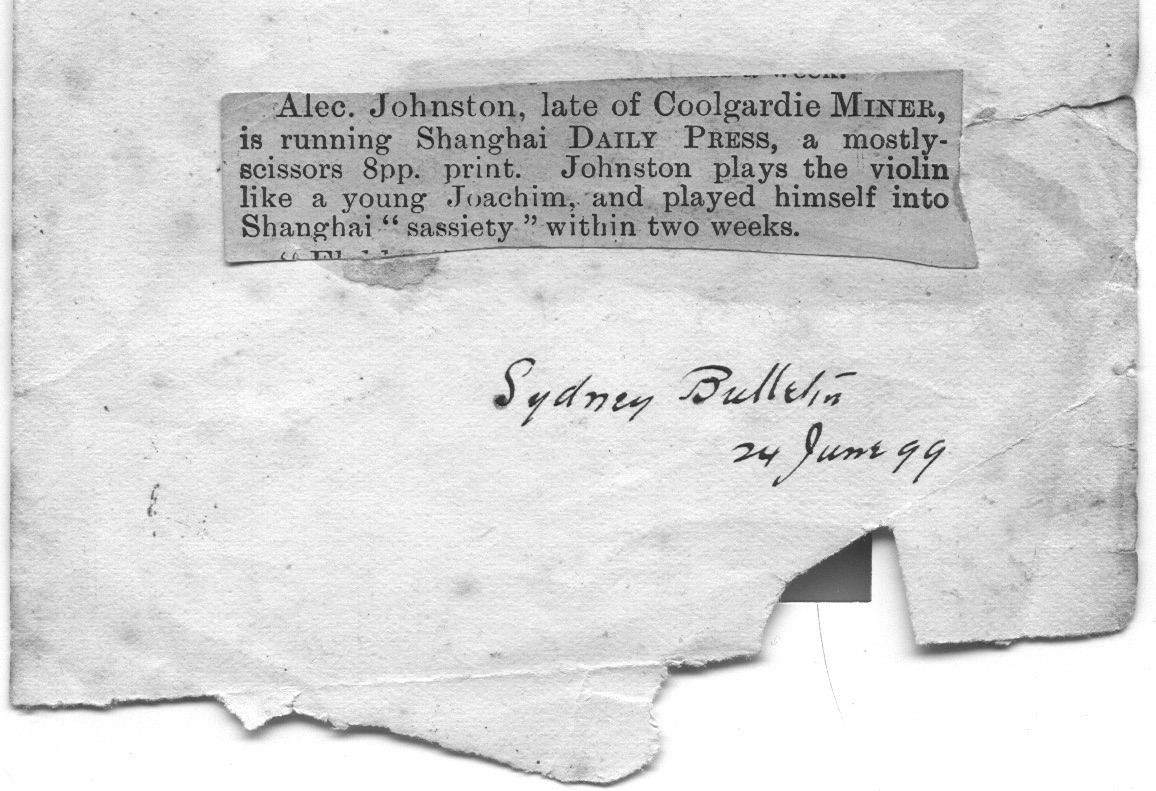 week.
Alec. Johnston, late of Coolgardie MINER,
is running Shanghai DAILY PRESS, a mostly-
scissors 8pp. print. Johnston plays the violin
like a young Joachim, and played himself into
Shanghai “ sassiety ” within two weeks.
Sydney Bulletin
24 June 99